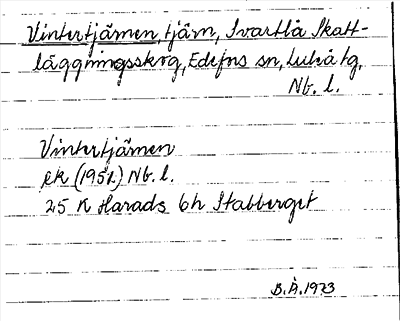 Vintertjärnen, tjärn, Svartlå Skatt-
läggningsskog, Edefors sn, Luleå tg,
Nb. l.
Vintertjärnen
ek (1951) Nb. l.
25 K Harads 6h Stabberget
B.Å. 1973